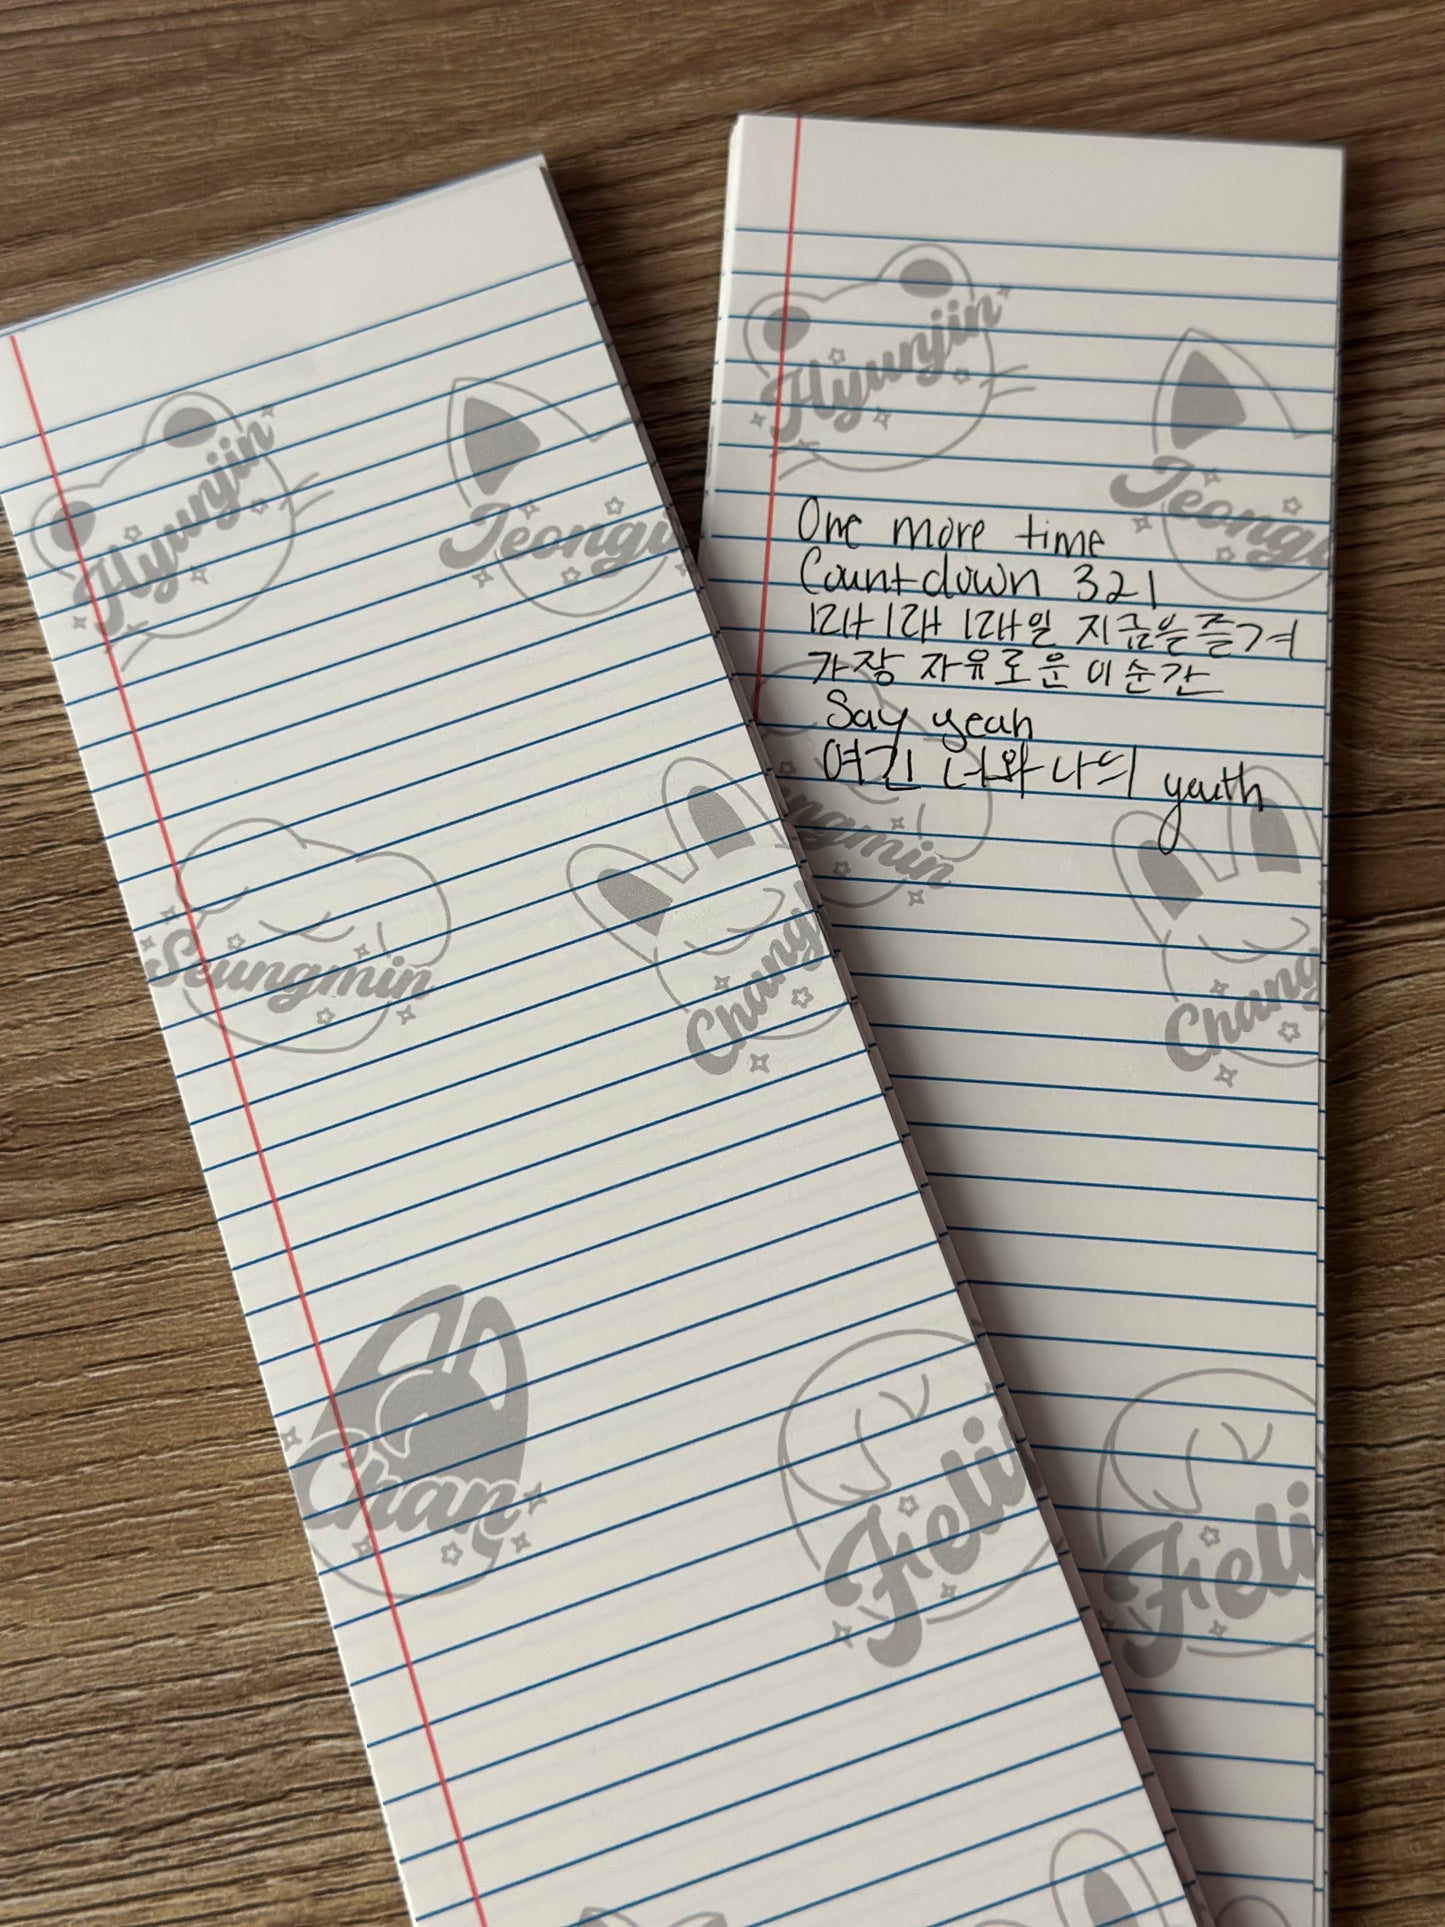 Hyunjin
Jeongi
Seungmin
Chang
Chan
Feli
Hyunjin
Jeongi
One more time
Countdown 321
지금을 즐겨
가장 자유로운 이 순간
Say yeah
여긴 너와 나의 youth
ungmin
Chang
Feli